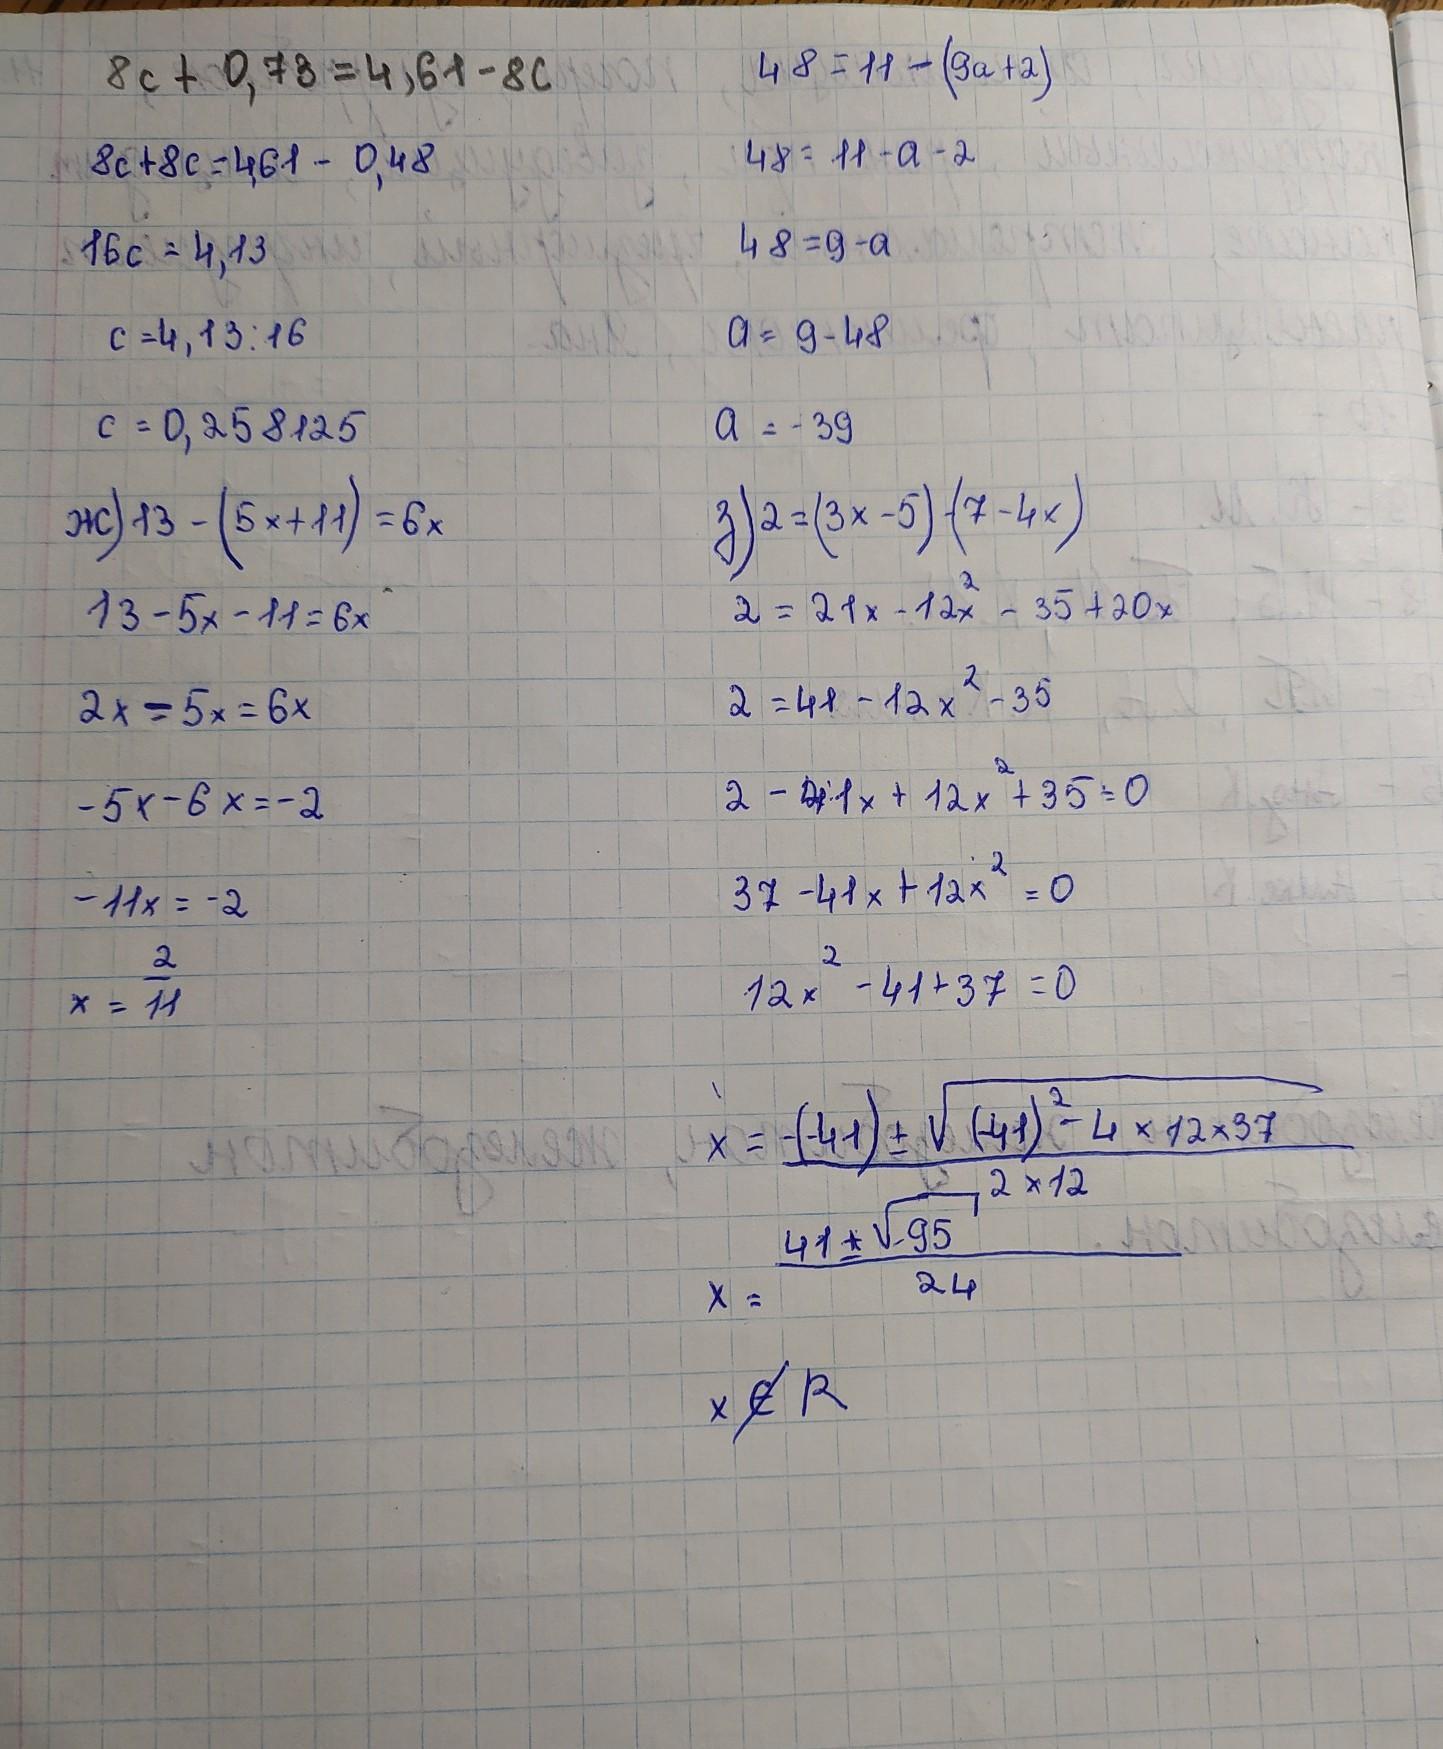 8c + 0,73 = 4,61 - 8c
8c + 8c = 4,61 - 0,48
16c = 4,13
c = 4,13 : 16
c = 0,258125
ж) 13 - (5x + 11) = 6x
13 - 5x - 11 = 6x
2x - 5x = 6x
-5x - 6x = -2
-11x = -2
x = 2/11
48 = 11 - (9a + 2)
48 = 11 - a - 2
48 = 9 - a
a = 9 - 48
a = -39
з) 2 = (3x - 5) - (7 - 4x)
2 = 21x - 12x² - 35 + 20x
2 = 41 - 12x² - 35
2 - 41x + 12x² + 35 = 0
37 - 41x + 12x² = 0
12x² - 41 + 37 = 0
x = -(-41) ± √(-41)² - 4 × 12 × 37 / 2 × 12
x = 41 ± √-95 / 24
x ∉ R